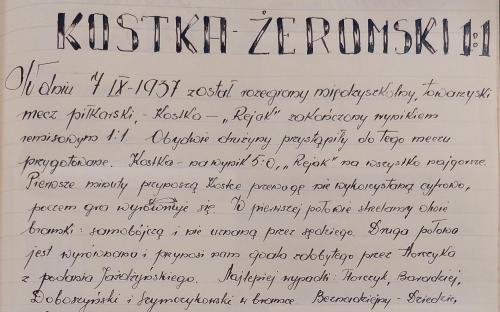 KOSTKA - ŻEROMSKI 1:1
W dniu 7 IX-1937 został rozegrany międzyszkolny, towarzyski
mecz piłkarski, - Kostka - „Rejak" zakończony wynikiem
remisowym 1:1. Obydwie drużyny przystąpiły do tego meczu
przygotowane. Kostka - na wynik 5:0, „Rejak" na wszystko najgorsze.
Pierwsze minuty przynoszą Kostce przewagę nie wykorzystaną cyfrowo,
poczem gra wyrównuje się. W pierwszej połowie strzelamy dwie
bramki: samobójczą i nie uznaną przez sędziego. Druga połowa
jest wyrównana i przynosi nam goala zdobytego przez
z podania Jażdżyńskiego. Najlepiej wypadli:
Doboszyński i Szymczykowski w bramce. - Dziedzic,